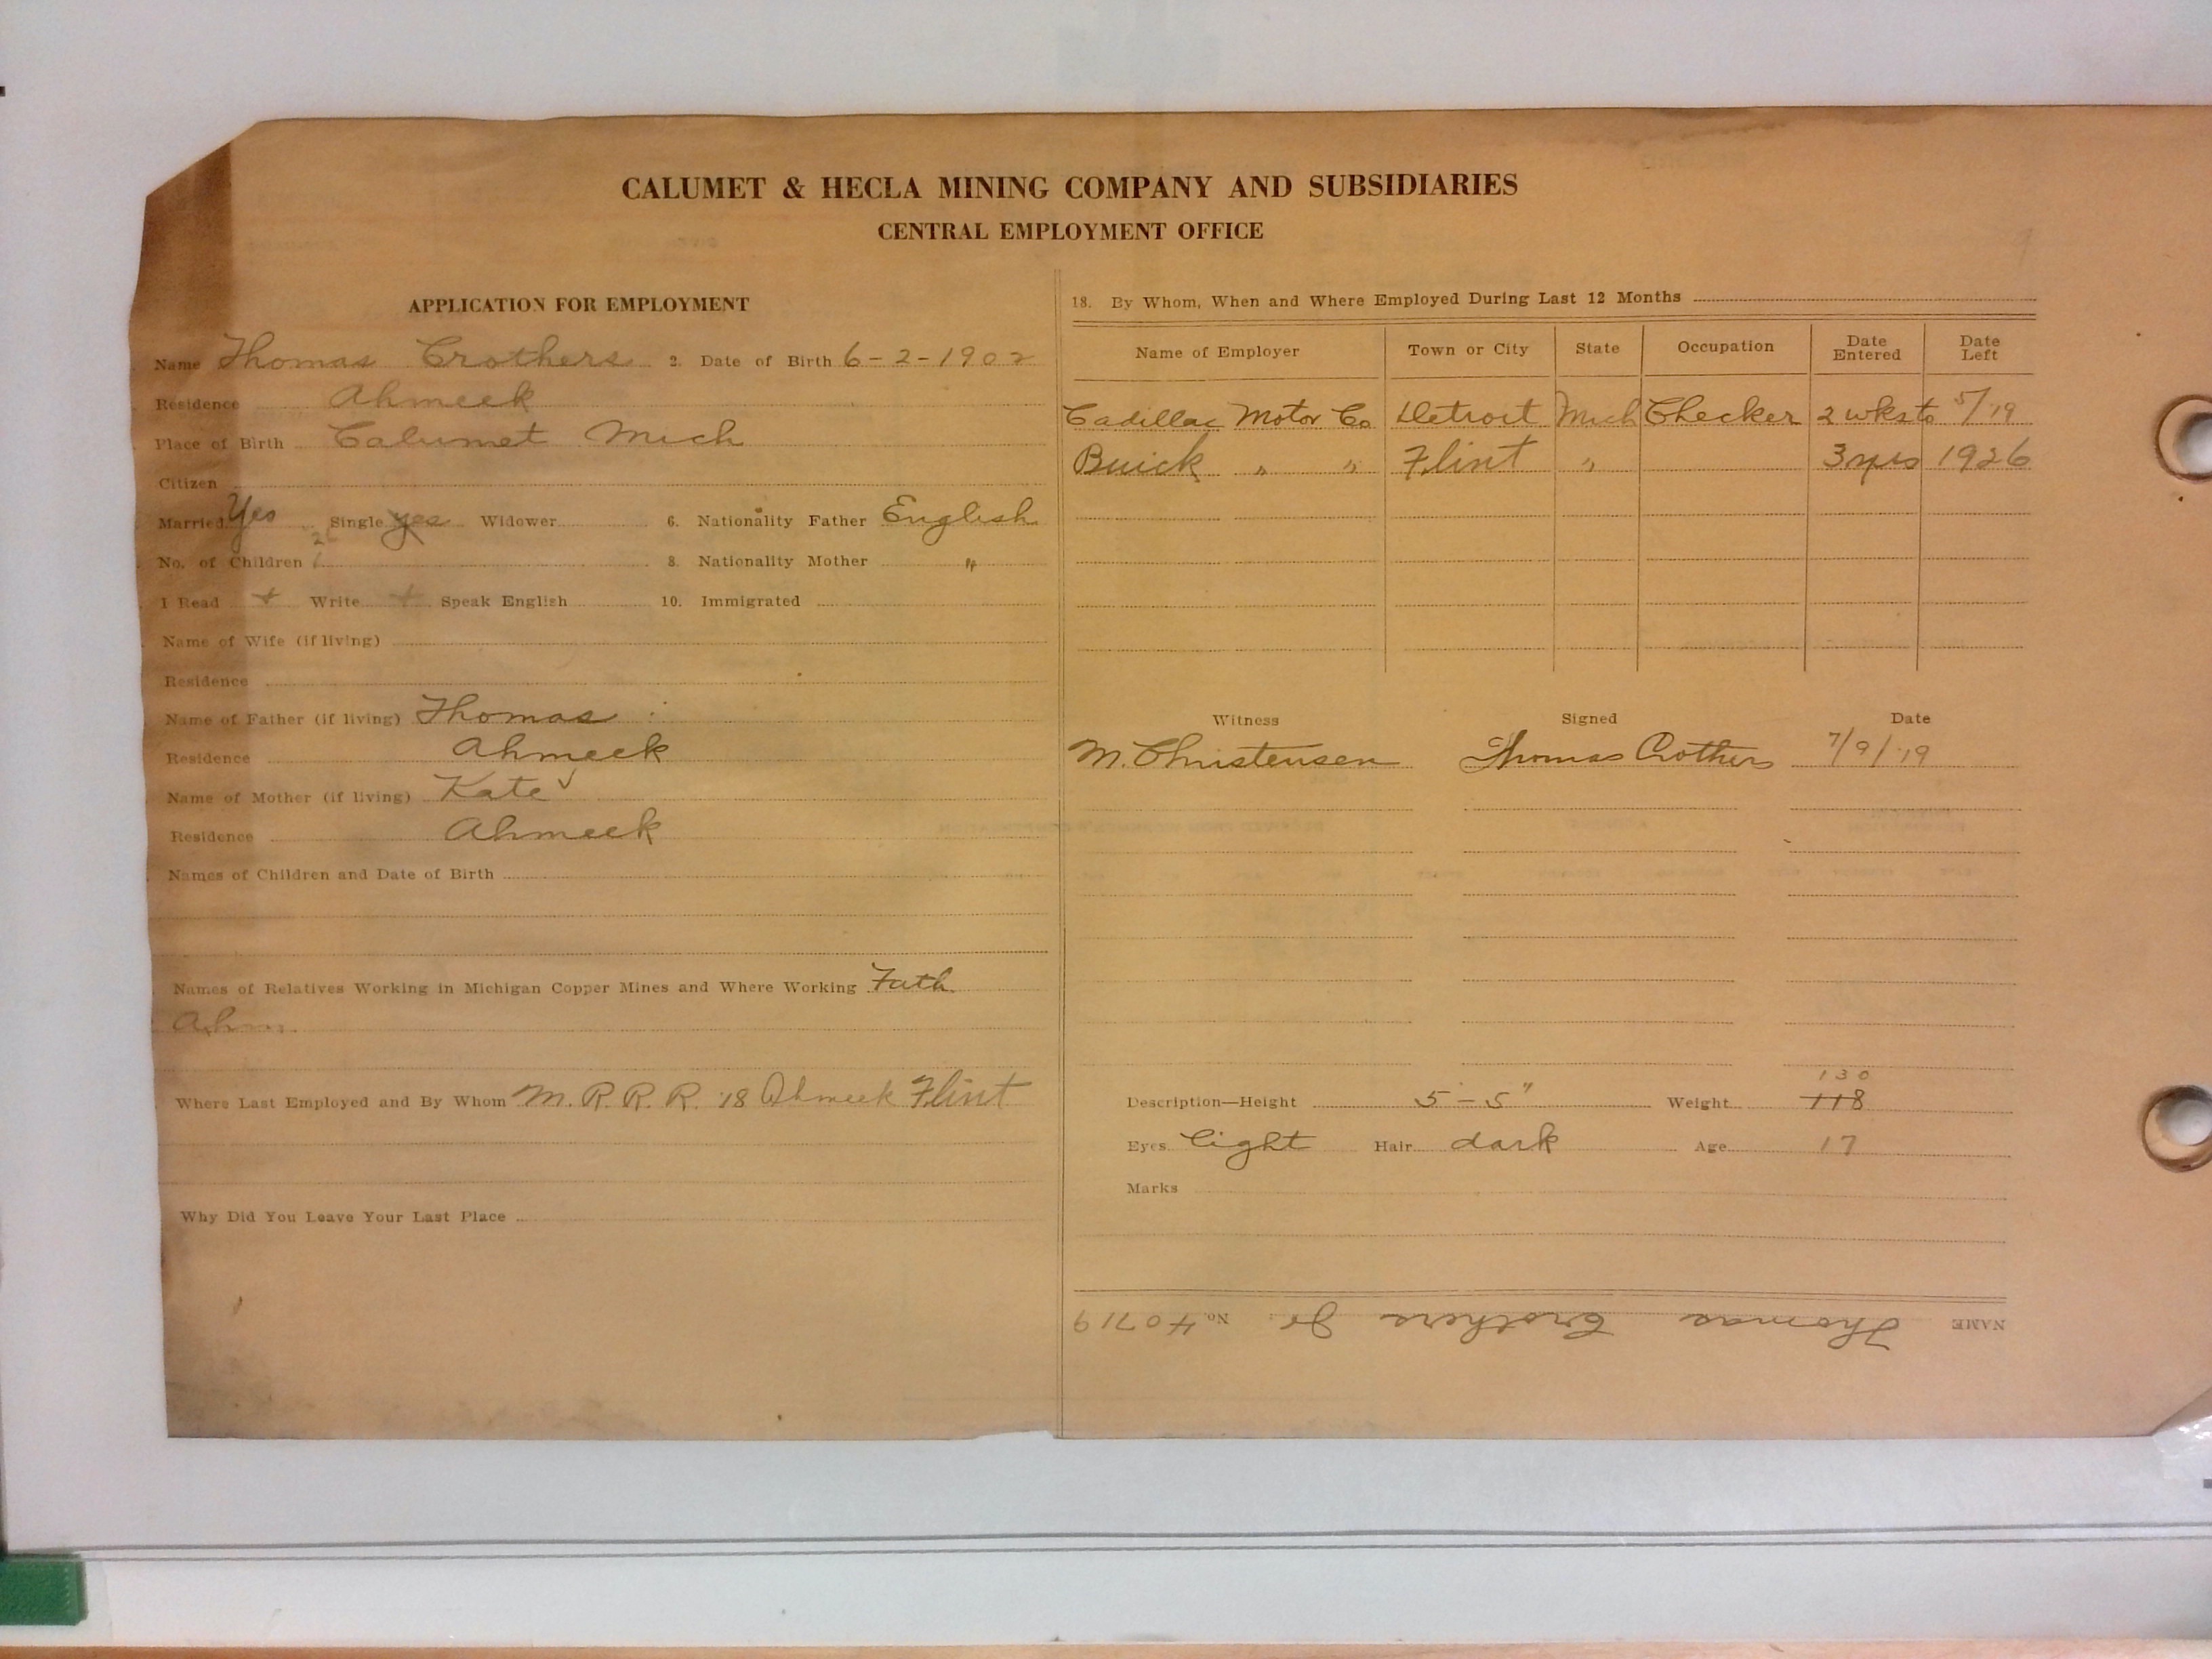 CALUMET & HECLA MINING COMPANY AND SUBSIDIARIES
CENTRAL EMPLOYMENT OFFICE
APPLICATION FOR EMPLOYMENT
Name Thomas Crothers 2. Date of Birth 6-2-1902
Residence Ahmeek
Place of Birth Calumet Mich
Citizen
Married Yes Single yes Widower 6. Nationality Father English
2
No. of Children 1 8. Nationality Mother "
I Read + Write + Speak English 10. Immigrated
Name of Wife (if living)
Residence
Name of Father (if living) Thomas
Residence Ahmeek
Name of Mother (if living) Kate ✓
Residence Ahmeek
Names of Children and Date of Birth
Names of Relatives Working in Michigan Copper Mines and Where Working Fath.
Ahm.
Where Last Employed and By Whom M. R. R. R. '18 Ahmeek Flint
Why Did You Leave Your Last Place
18. By Whom, When and Where Employed During Last 12 Months
Name of Employer Town or City State Occupation Date Entered Date Left
Cadillac Motor Co Detroit Mich Checker 2 wks to 5/19
Buick " " Flint " 3 yrs 1926
Witness Signed Date
M. Christensen Thomas Crothers 7/9/19
130
Description—Height 5-5" Weight 118
Eyes light Hair dark Age 17
Marks
NAME Thomas Crothers Jr. No. 40719